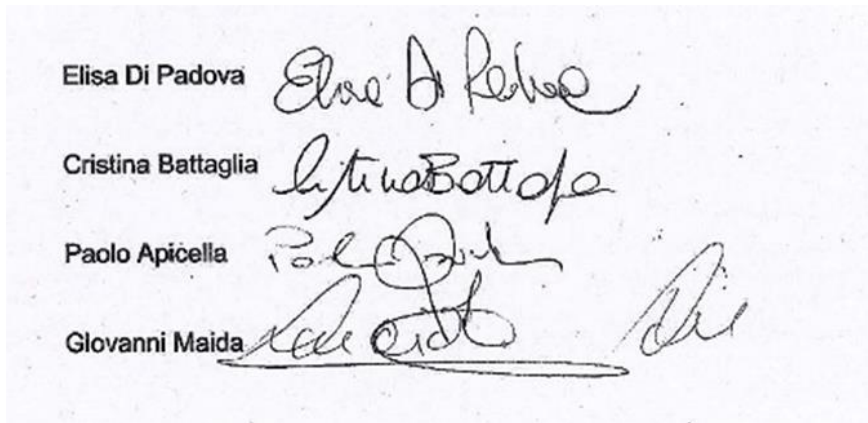 Elisa Di Padova Elisa Di Padova
Cristina Battaglia Cristina Battaglia
Paolo Apicella Paolo
Giovanni Maida